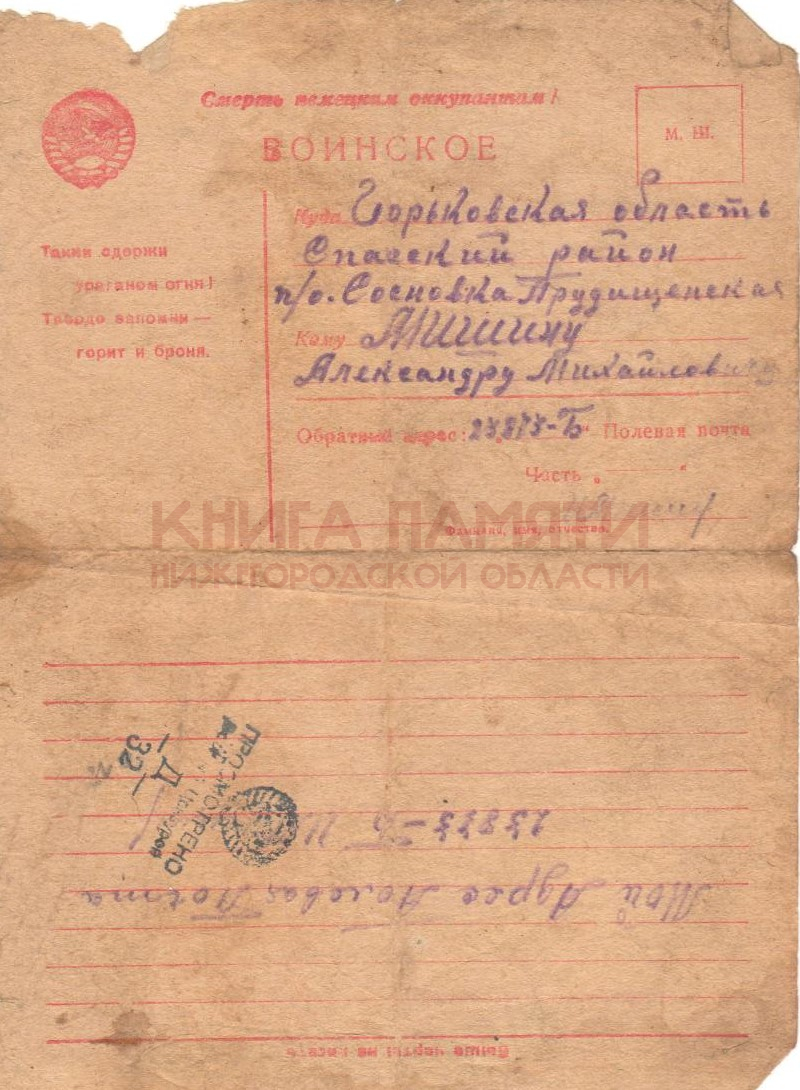 Смерть немецким оккупантам!
ВОИНСКОЕ
М. Ш.
Танки сдержи
ураганом огня!
Твердо запомни —
горит и броня.
Куда Горьковская область
Спасский район
п/о. Сосновка Прудищенская
Кому Мишину
Александру Михайловичу
Обратный адрес: "-Б" Полевая почта
Часть „ “
Фамилия, имя, отчество.
КНИГА ПАМЯТИ
НИЖЕГОРОДСКОЙ ОБЛАСТИ
ПРОСМОТРЕНО
Цензурой
Д
32
Мой Адрес Полевая Почта
Выше черты не писать